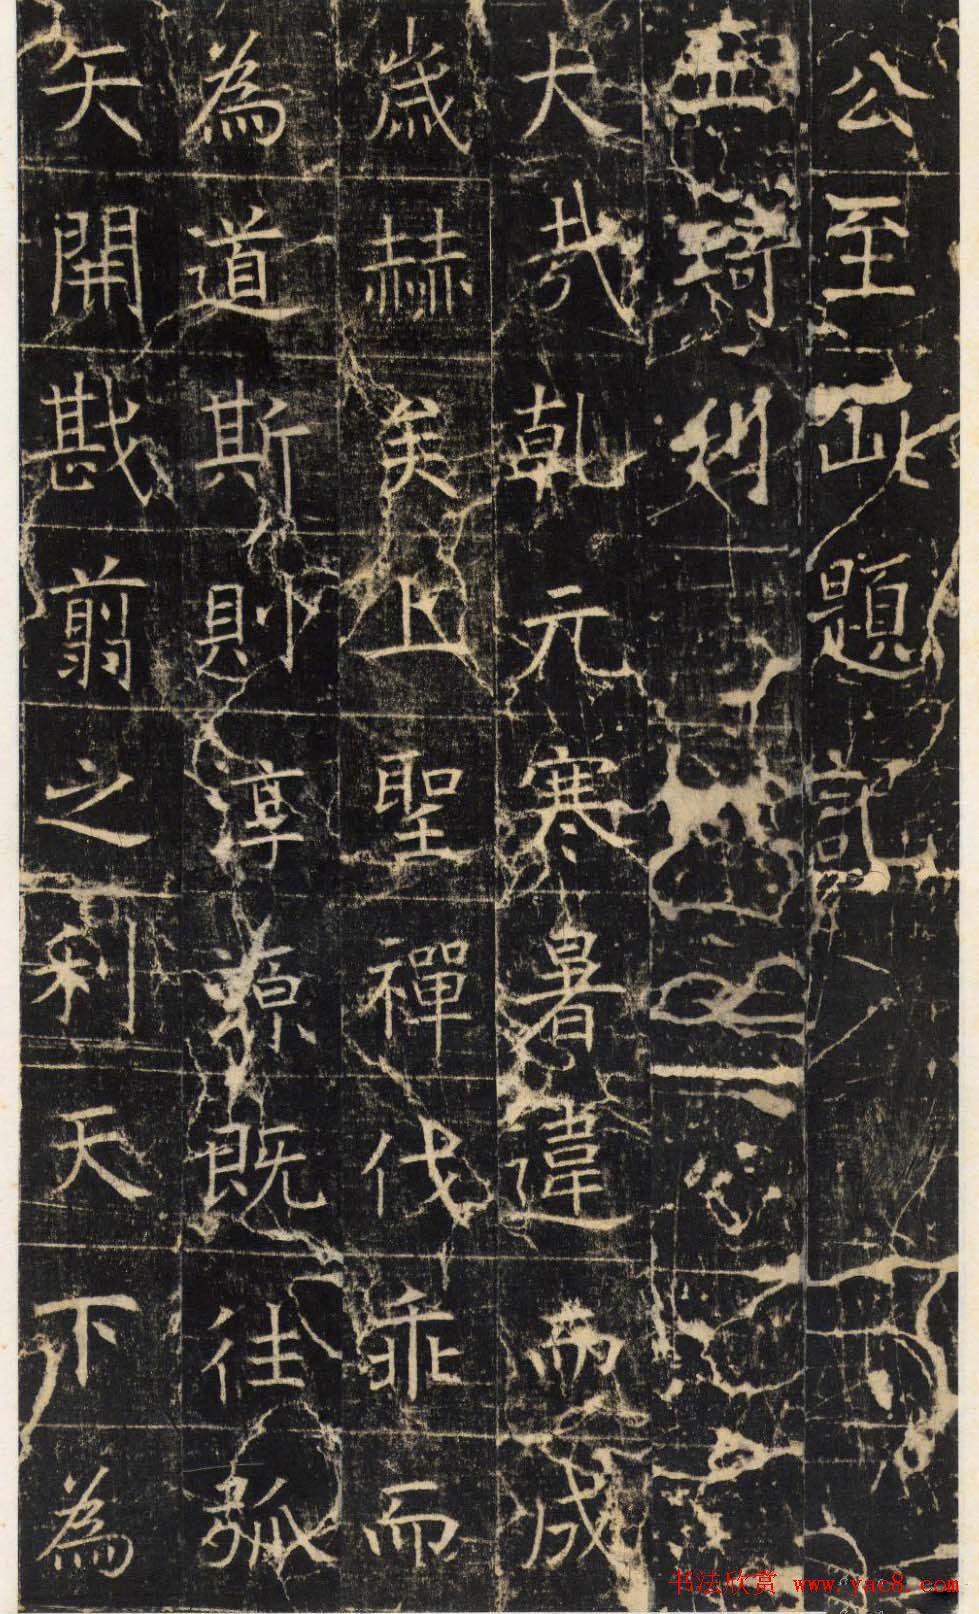 公至此題記
琦
大哉乾元寒暑違而成
歲赫矣上聖禪代乖而
為道斯則淳源既往弧
矢開戡翦之利天下為
书法欣赏 www.yac8.com